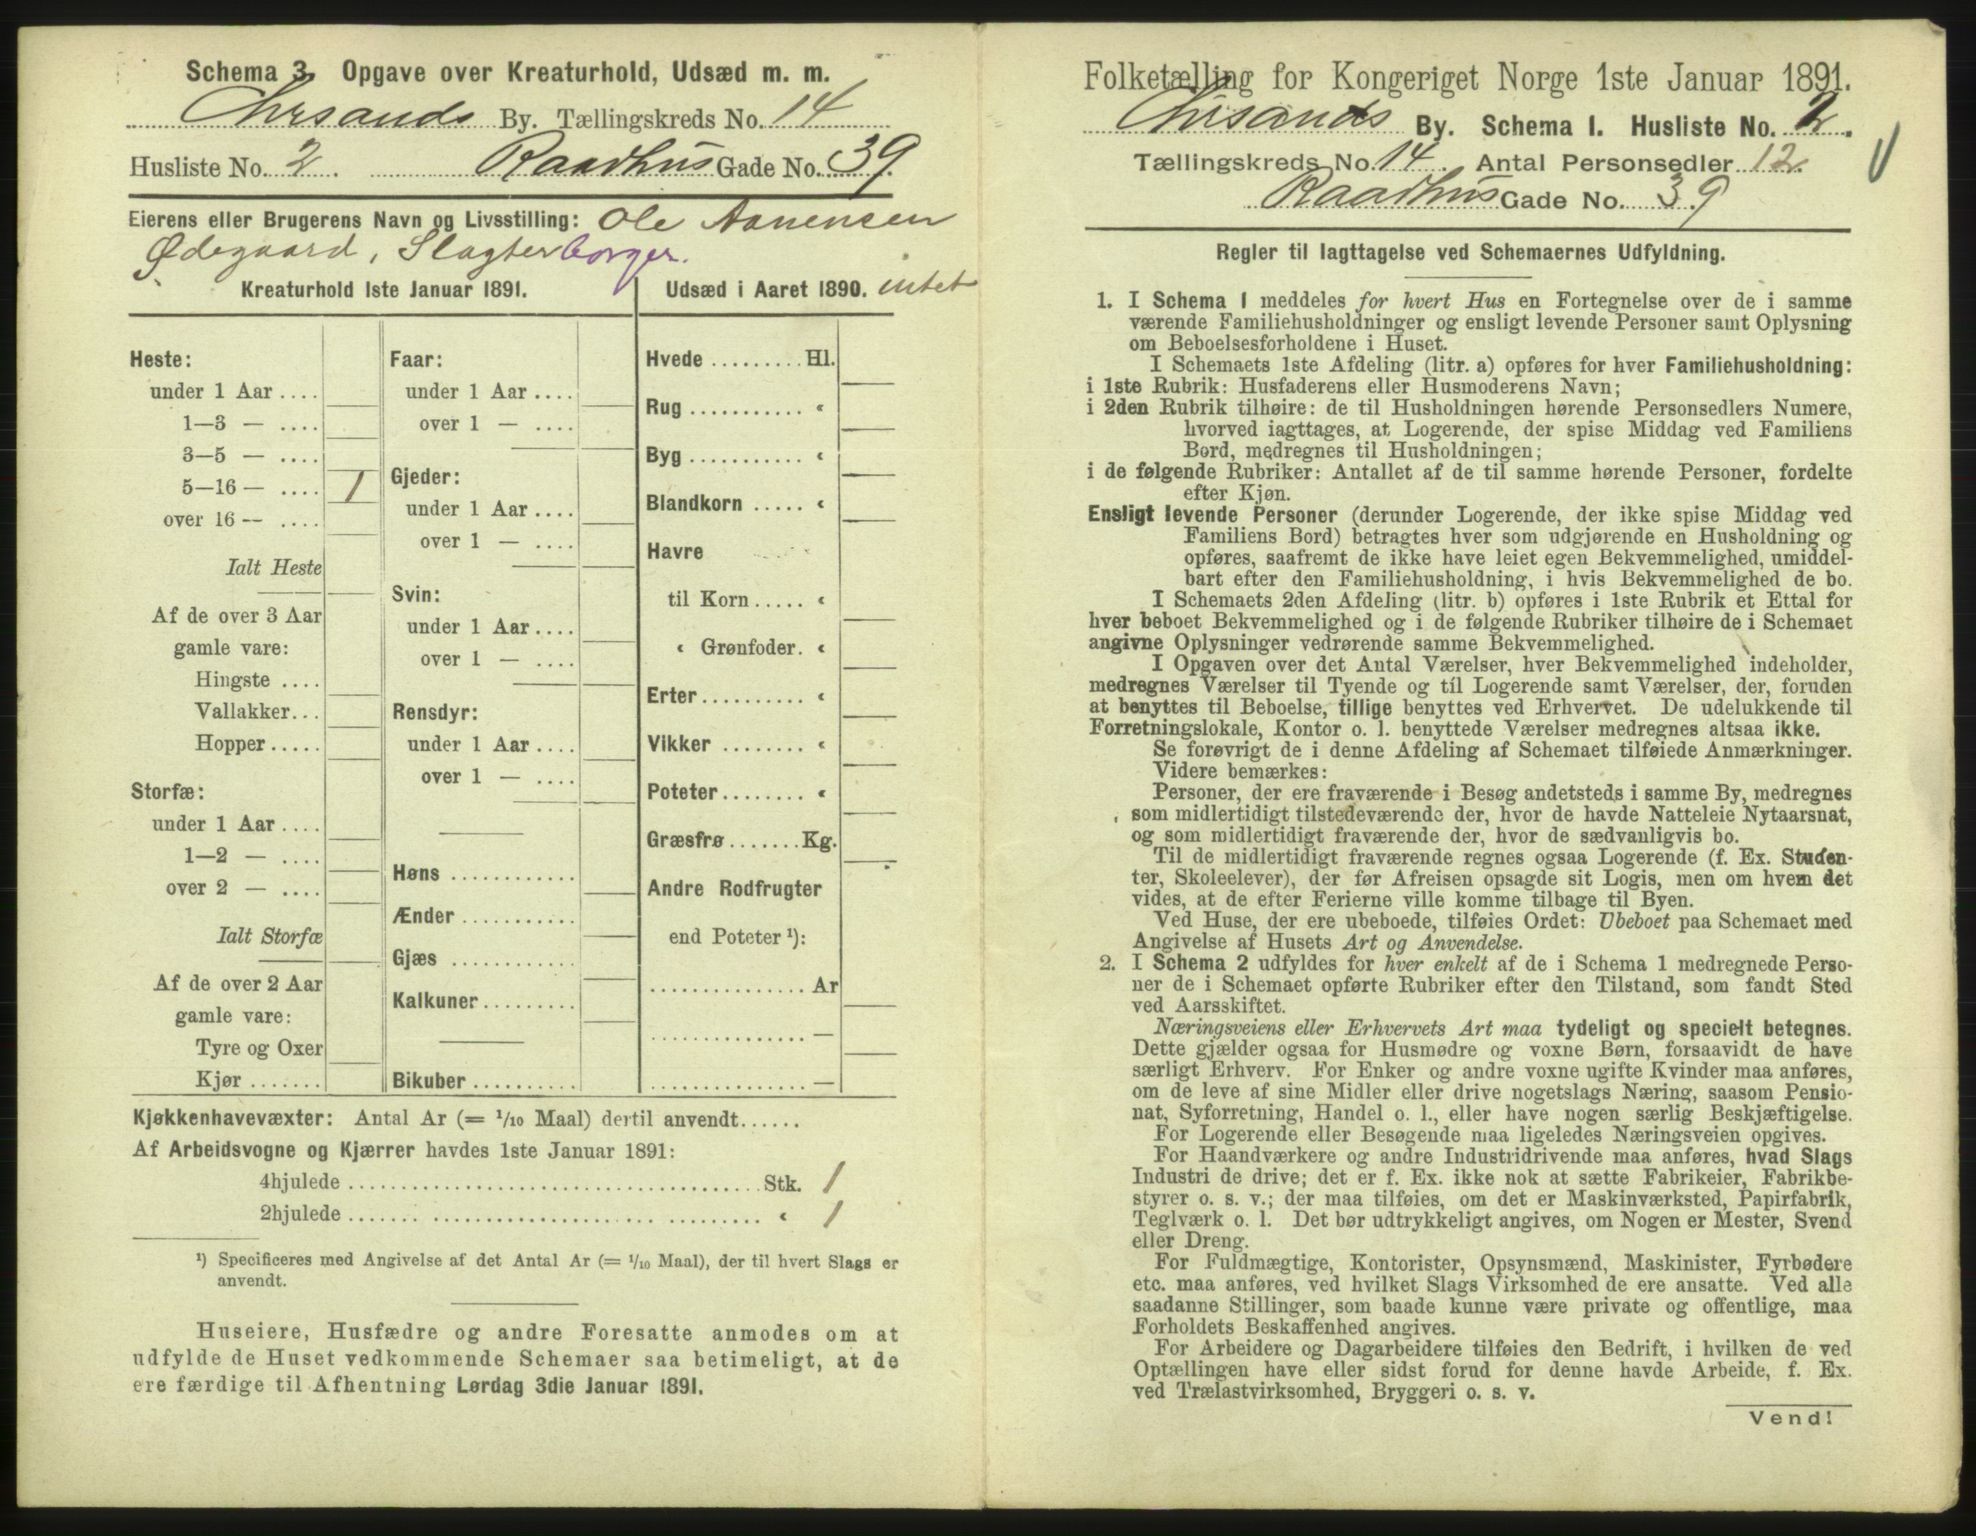 Schema 3. Opgave over Kreaturhold, Udsæd m. m.
Chrsands By. Tællingskreds No. 14
Husliste No. 2. Raadhus Gade No. 39.
Eierens eller Brugerens Navn og Livsstilling: Ole Aanensen
Ødegaard, Slagterborger.
Kreaturhold 1ste Januar 1891.
Heste:
under 1 Aar ....
1—3 — ....
3—5 — ....
5—16 — .... 1
over 16 -- ....
Ialt Heste
Af de over 3 Aar
gamle vare:
Hingste ....
Vallakker...
Hopper.....
Storfæ:
under 1 Aar ....
1—2 — ....
over 2 — ....
Ialt Storfæ
Af de over 2 Aar
gamle vare:
Tyre og Oxer
Kjør .......
Faar:
under 1 Aar ....
over 1 — ....
Gjeder:
under 1 Aar ....
over 1 — ....
Svin:
under 1 Aar ....
over 1 — ....
Rensdyr:
under 1 Aar ....
over 1 — ....
Høns ............
Ænder ...........
Gjæs ............
Kalkuner.........
Bikuber ..........
Udsæd i Aaret 1890. intet
Hvede ......... Hl.
Rug ........... "
Byg ........... "
Blandkorn ..... "
Havre
til Korn ..... "
" Grønfoder. "
Erter.......... "
Vikker ........ "
Poteter........ "
Græsfrø ....... Kg.
Andre Rodfrugter
end Poteter ¹):
............... Ar
............... —
............... —
Kjøkkenhavevæxter: Antal Ar (= 1/10 Maal) dertil anvendt......
Af Arbeidsvogne og Kjærrer havdes 1ste Januar 1891:
4hjulede ........................................ Stk. 1
2hjulede ........................................ " 1
¹) Specificeres med Angivelse af det Antal Ar (= 1/10 Maal), der til hvert Slags er
anvendt.
Huseiere, Husfædre og andre Foresatte anmodes om at
udfylde de Huset vedkommende Schemaer saa betimeligt, at de
ere færdige til Afhentning Lørdag 3die Januar 1891.
Folketælling for Kongeriget Norge 1ste Januar 1891.
Chrsands By. Schema 1. Husliste No. 2.
Tællingskreds No. 14. Antal Personsedler 12.
Raadhus Gade No. 39
Regler til Iagttagelse ved Schemaernes Udfyldning.
1. I Schema 1 meddeles for hvert Hus en Fortegnelse over de i samme
værende Familiehusholdninger og ensligt levende Personer samt Oplysning
om Beboelsesforholdene i Huset.
I Schemaets 1ste Afdeling (litr. a) opføres for hver Familiehusholdning:
i 1ste Rubrik: Husfaderens eller Husmoderens Navn;
i 2den Rubrik tilhøire: de til Husholdningen hørende Personsedlers Numere,
hvorved iagttages, at Logerende, der spise Middag ved Familiens
Bord, medregnes til Husholdningen;
i de følgende Rubriker: Antallet af de til samme hørende Personer, fordelte
efter Kjøn.
Ensligt levende Personer (derunder Logerende, der ikke spise Middag ved
Familiens Bord) betragtes hver som udgjørende en Husholdning og
opføres, saafremt de ikke have leiet egen Bekvemmelighed, umiddel-
bart efter den Familiehusholdning, i hvis Bekvemmelighed de bo.
I Schemaets 2den Afdeling (litr. b) opføres i 1ste Rubrik et Ettal for
hver beboet Bekvemmelighed og i de følgende Rubriker tilhøire de i Schemaet
angivne Oplysninger vedrørende samme Bekvemmelighed.
I Opgaven over det Antal Værelser, hver Bekvemmelighed indeholder,
medregnes Værelser til Tyende og til Logerende samt Værelser, der, foruden
at benyttes til Beboelse, tillige benyttes ved Erhvervet. De udelukkende til
Forretningslokale, Kontor o. l. benyttede Værelser medregnes altsaa ikke.
Se forøvrigt de i denne Afdeling af Schemaet tilføiede Anmærkninger.
Videre bemærkes:
Personer, der ere fraværende i Besøg andetsteds i samme By, medregnes
som midlertidigt tilstedeværende der, hvor de havde Natteleie Nytaarsnat,
og som midlertidigt fraværende der, hvor de sædvanligvis bo.
Til de midlertidigt fraværende regnes ogsaa Logerende (f. Ex. Studen-
ter, Skoleelever), der før Afreisen opsagde sit Logis, men om hvem det
vides, at de efter Ferierne ville komme tilbage til Byen.
Ved Huse, der ere ubeboede, tilføies Ordet: Ubeboet paa Schemaet med
Angivelse af Husets Art og Anvendelse.
2. I Schema 2 udfyldes for hver enkelt af de i Schema 1 medregnede Perso-
ner de i Schemaet opførte Rubriker efter den Tilstand, som fandt Sted
ved Aarsskiftet.
Næringsveiens eller Erhvervets Art maa tydeligt og specielt betegnes.
Dette gjælder ogsaa for Husmødre og voxne Børn, forsaavidt de have
særligt Erhverv. For Enker og andre voxne ugifte Kvinder maa anføres,
om de leve af sine Midler eller drive nogetslags Næring, saasom Pensio-
nat, Syforretning, Handel o. l., eller have nogen særlig Beskjæftigelse.
For Logerende eller Besøgende maa ligeledes Næringsveien opgives.
For Haandværkere og andre Industridrivende maa anføres, hvad Slags
Industri de drive; det er f. Ex. ikke nok at sætte Fabrikeier, Fabrikbe-
styrer o. s. v.; der maa tilføies, om det er Maskinværksted, Papirfabrik,
Teglværk o. l. Det bør udtrykkeligt angives, om Nogen er Mester, Svend
eller Dreng.
For Fuldmægtige, Kontorister, Opsynsmænd, Maskinister, Fyrbødere
etc. maa anføres, ved hvilket Slags Virksomhed de ere ansatte. Ved alle
saadanne Stillinger, som baade kunne være private og offentlige, maa
Forholdets Beskaffenhed angives.
For Arbeidere og Dagarbeidere tilføies den Bedrift, i hvilken de ved
Optællingen have eller sidst forud for denne havde Arbeide, f. Ex.
ved Trælastvirksomhed, Bryggeri o. s. v.
Vend!